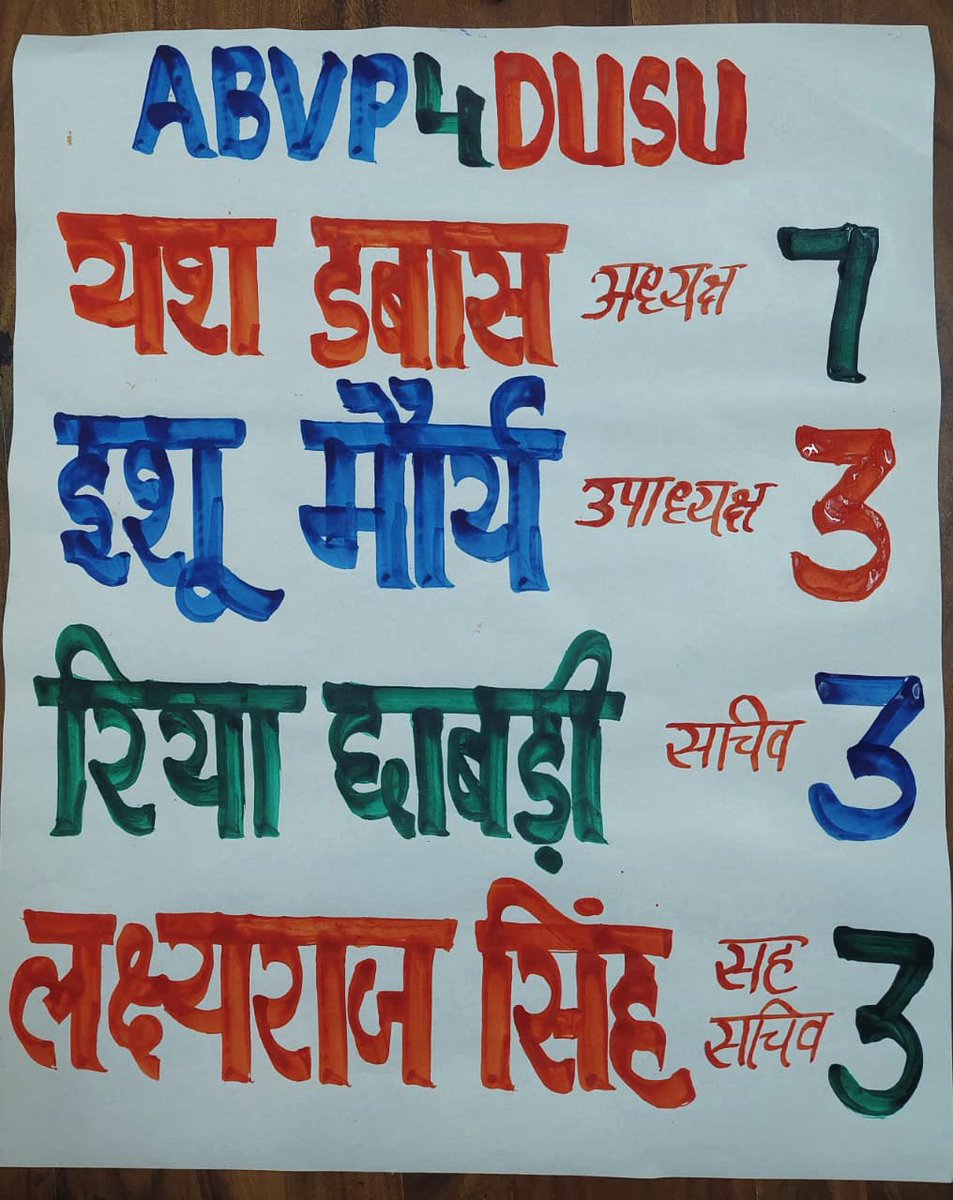 ABVP4DUSU
यश डबास अध्यक्ष 7
इशू मौर्य उपाध्यक्ष 3
रिया छाबड़ी सचिव 3
लक्ष्यराज सिंह सह सचिव 3